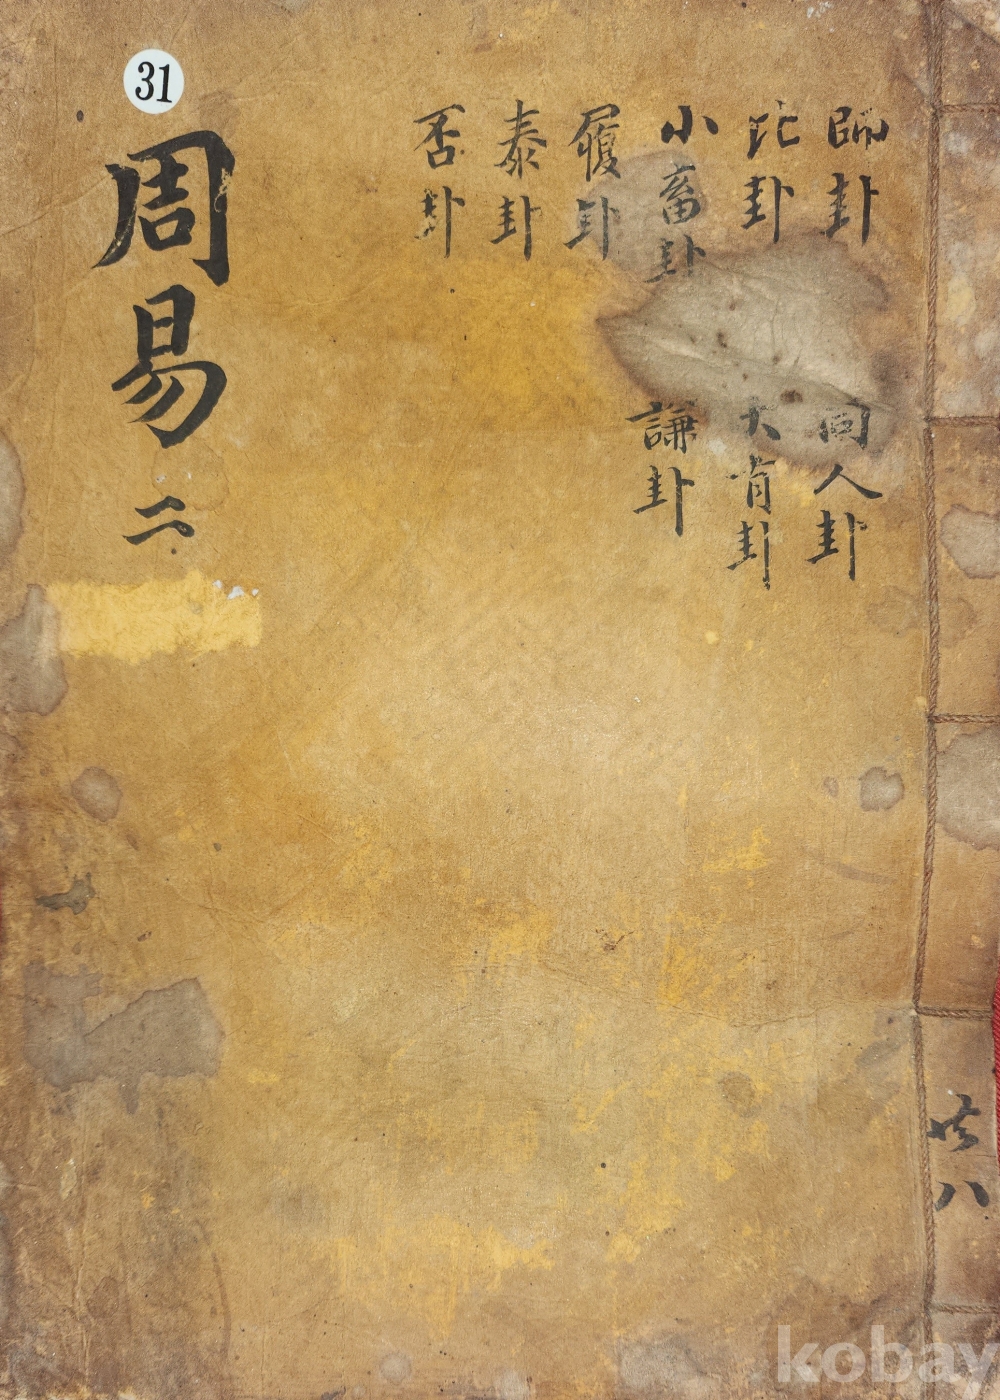 31
周易二
師卦
比卦
小畜卦
履卦
泰卦
否卦
同人卦
大有卦
謙卦
共八
kobay